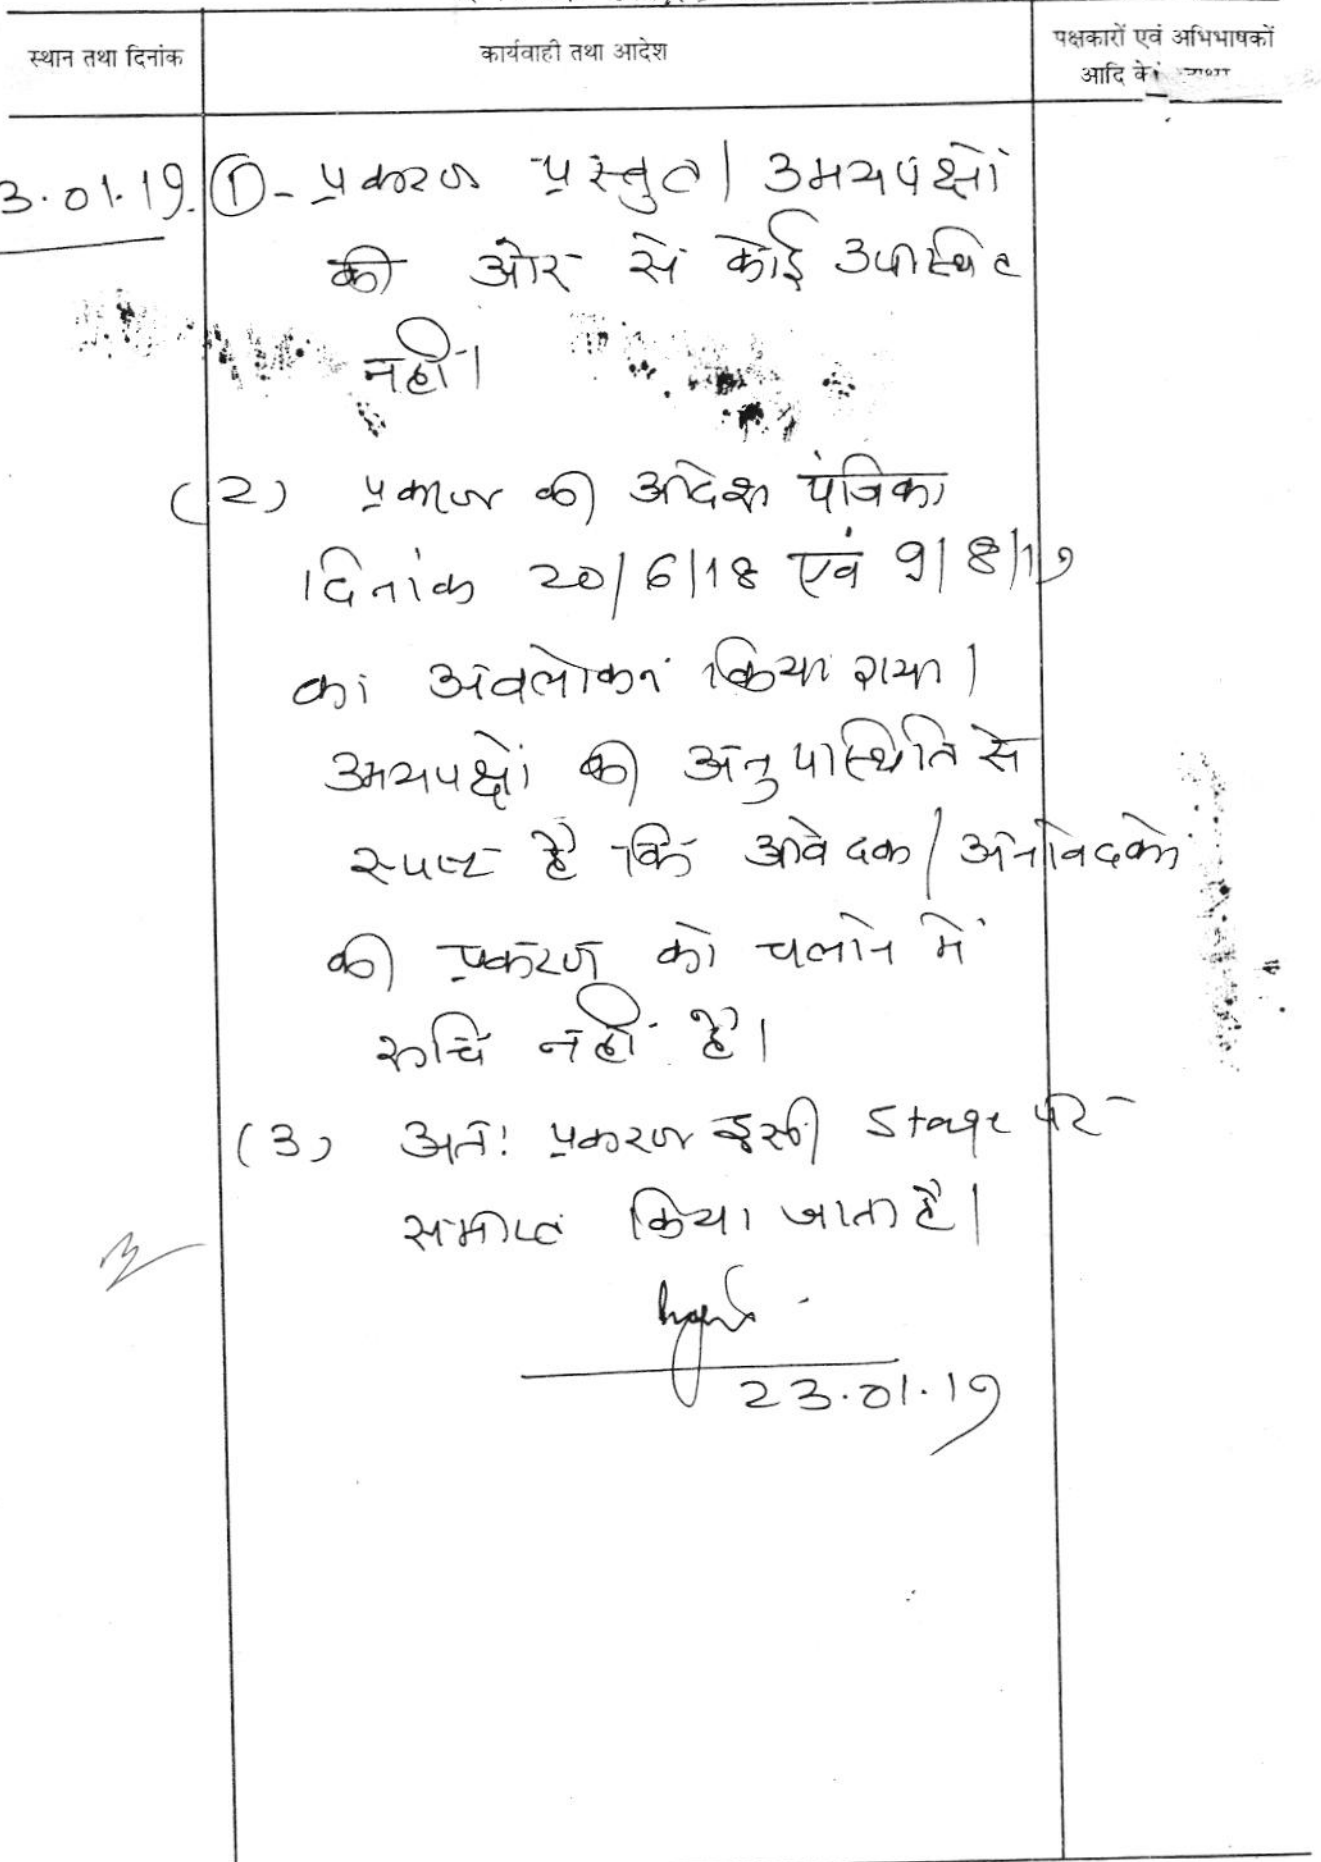 स्थान तथा दिनांक
कार्यवाही तथा आदेश
पक्षकारों एवं अभिभाषकों
आदि के
3.01.19. (1) - प्रकरण प्रस्तुत। उभयपक्षों
की ओर से कोई उपस्थित
नहीं।
(2) प्रकरण की आदेश पंजिका
दिनांक 20/6/18 एवं 9/8/17
का अवलोकन किया गया।
उभयपक्षों की अनुपस्थिति से
स्पष्ट है कि आवेदक/अनावेदको
की प्रकरण को चलाने में
रुचि नहीं है।
(3) अतः प्रकरण इसी Stage पर
समाप्त किया जाता है।
23.01.19